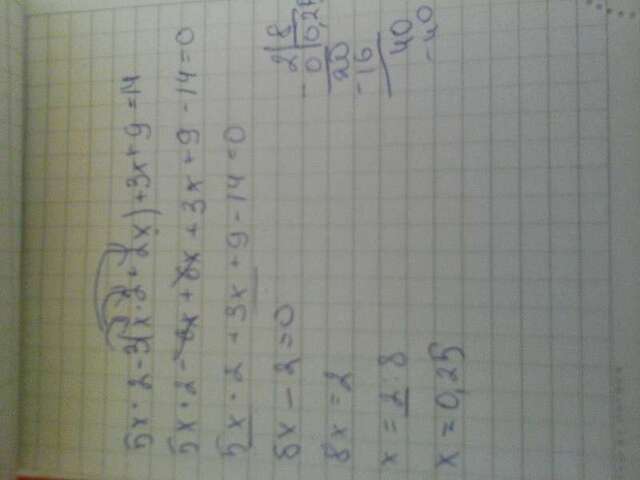 5x · 2 - 3(x · 2 + 2x) + 3x + 9 = 14
5x · 2 - 6x + 6x + 3x + 9 - 14 = 0
5x · 2 + 3x + 9 - 14 = 0
8x - 2 = 0
8x = 2
x = 2 : 8
x = 0,25
2 | 8
- 0 | 0,25
20
- 16
40
- 40